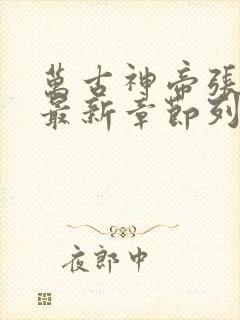 萬古神帝張
最新章節列
夜郎中